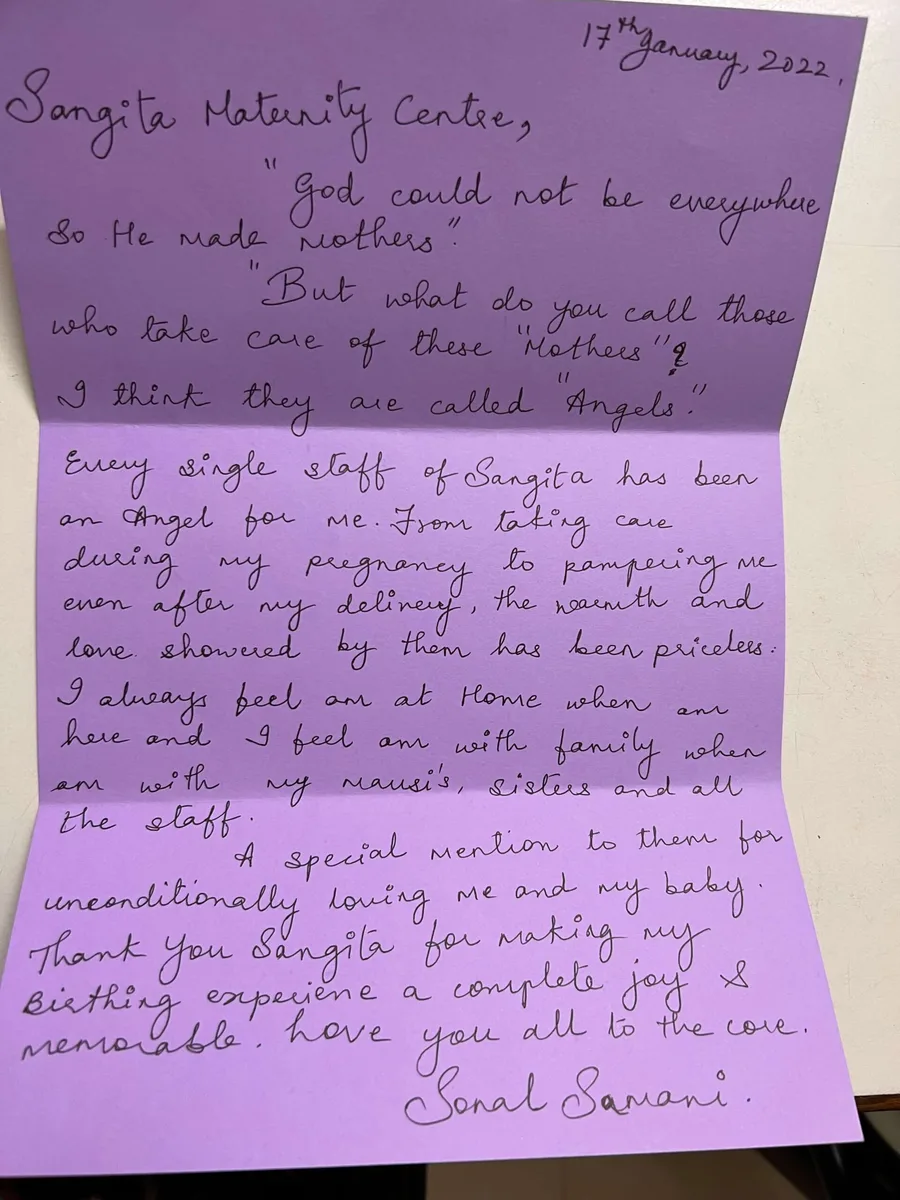 17th January, 2022.
Sangita Maternity Centre,
"God could not be everywhere
So He made Mothers".
"But what do you call those
who take care of these "Mothers"?
I think they are called "Angels".
Every single staff of Sangita has been
an Angel for me. From taking care
during my pregnancy to pampering me
even after my delivery, the warmth and
love showered by them has been priceless.
I always feel am at Home when am
here and I feel am with family when
am with my mausi's, sisters and all
the staff.
A special mention to them for
unconditionally loving me and my baby.
Thank You Sangita for making my
Birthing experiene a complete joy &
memorable. Love you all to the core.
Sonal Samani.